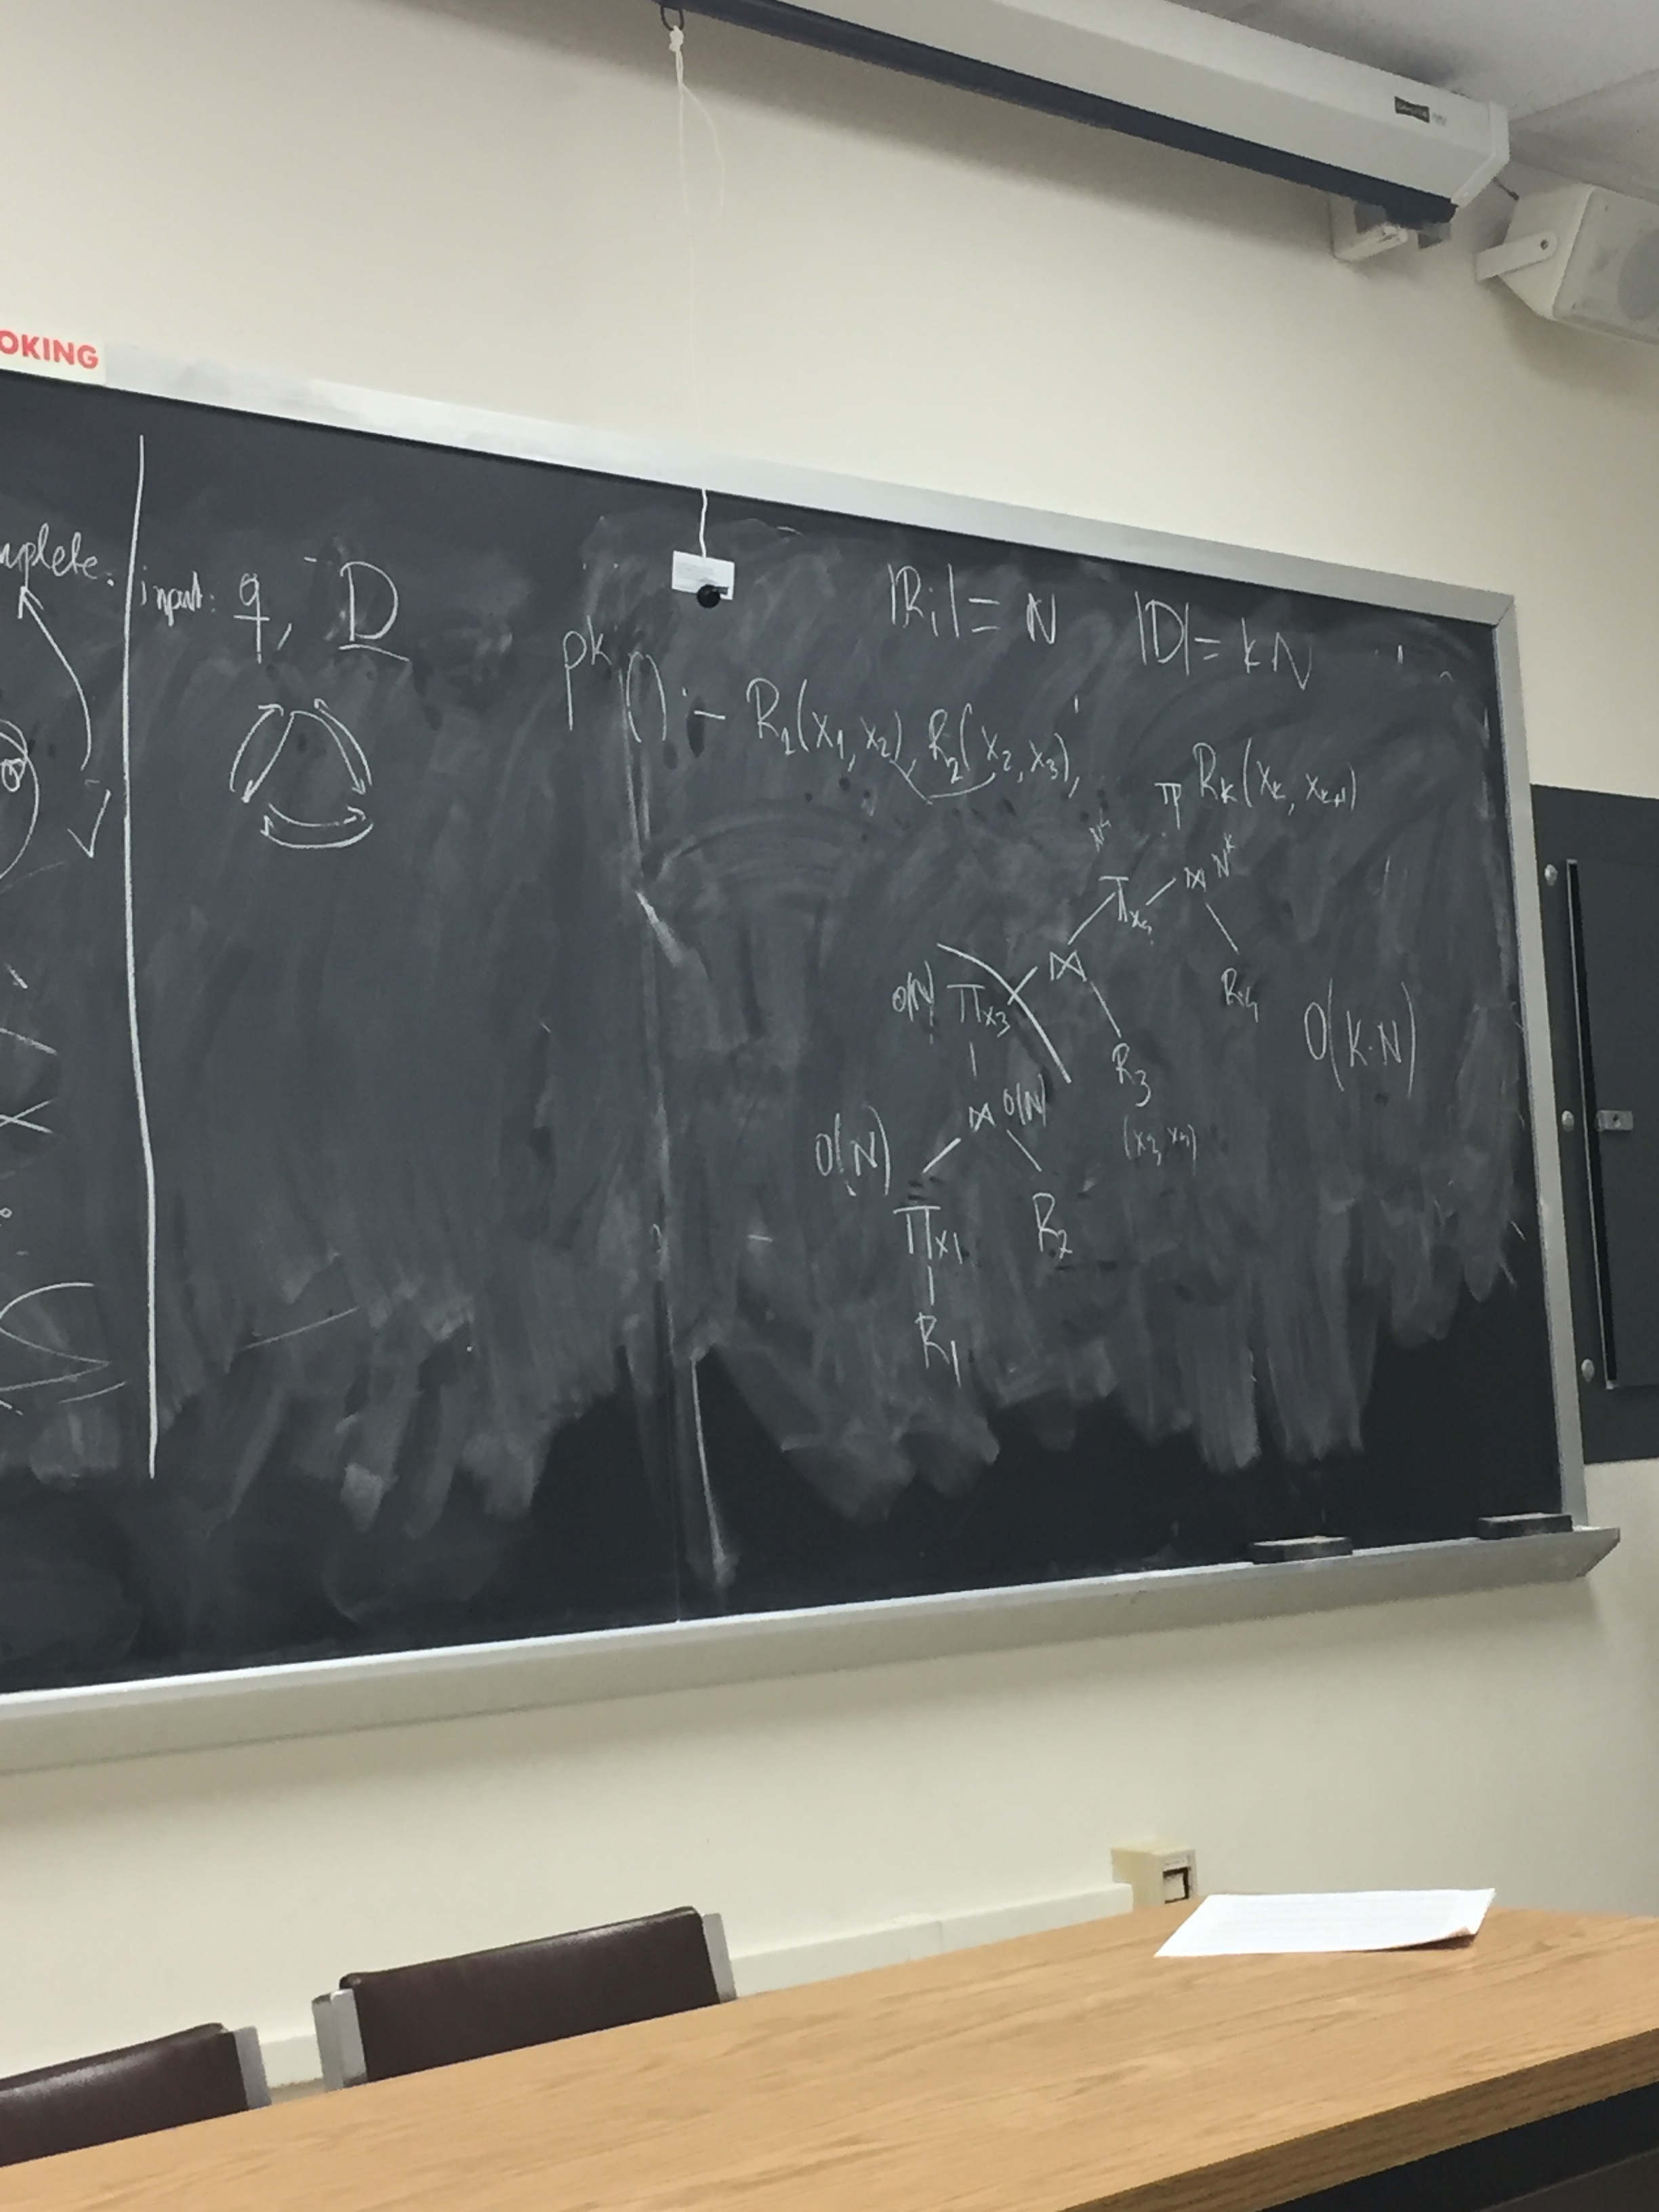 OKING
mplete.
input: q, D
|Ri| = N
|D| = kN
pk() :- R1(x1, x2), R2(x2, x3),
π Rk(xk, xk+1)
N4
⋈ Nk
Πx4
R4
⋈
O(N) Πx3
R3
(x3, x4)
O(K·N)
⋈ O(N)
O(N)
Πx1
R2
R1